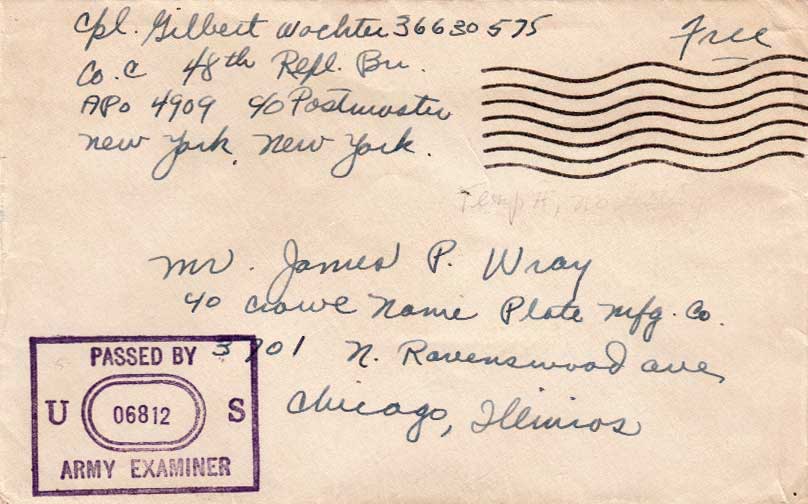 Cpl. Gilbert Wachter 36630575
Free
Co. C 48th Repl. Bn.
APO 4909 c/o Postmaster
New York, New York.
Mr. James P. Wray
c/o Crowe Name Plate Mfg. Co.
3701 N. Ravenswood Ave,
Chicago, Illinois
PASSED BY
U 06812 S
ARMY EXAMINER